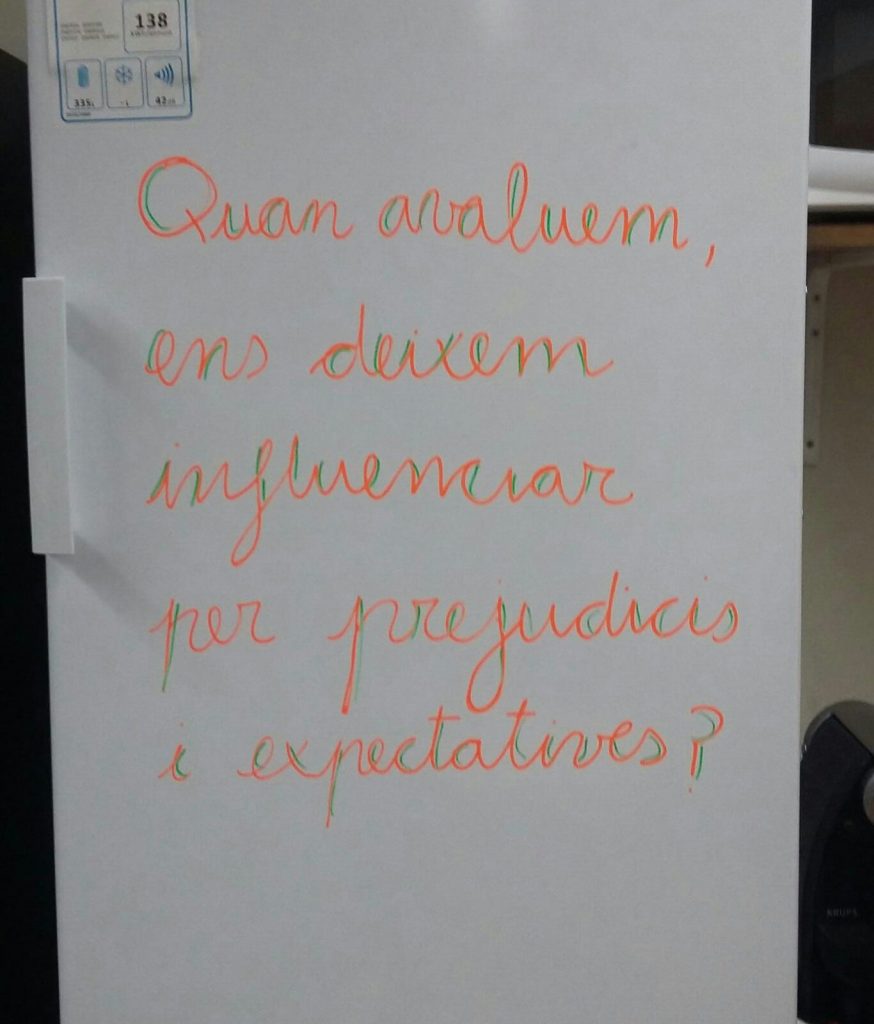 138
335L
42dB
Quan avaluem,
ens deixem
influenciar
per prejudicis
i expectatives?
KRUPS